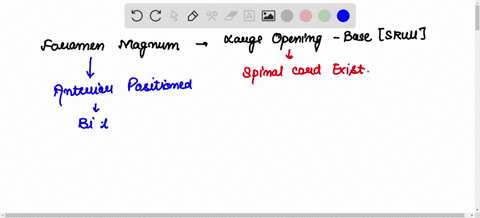 Foramen Magnum → Large Opening - Base [SKUll]
Spinal cord Exist.
Anterior Positioned
Bi